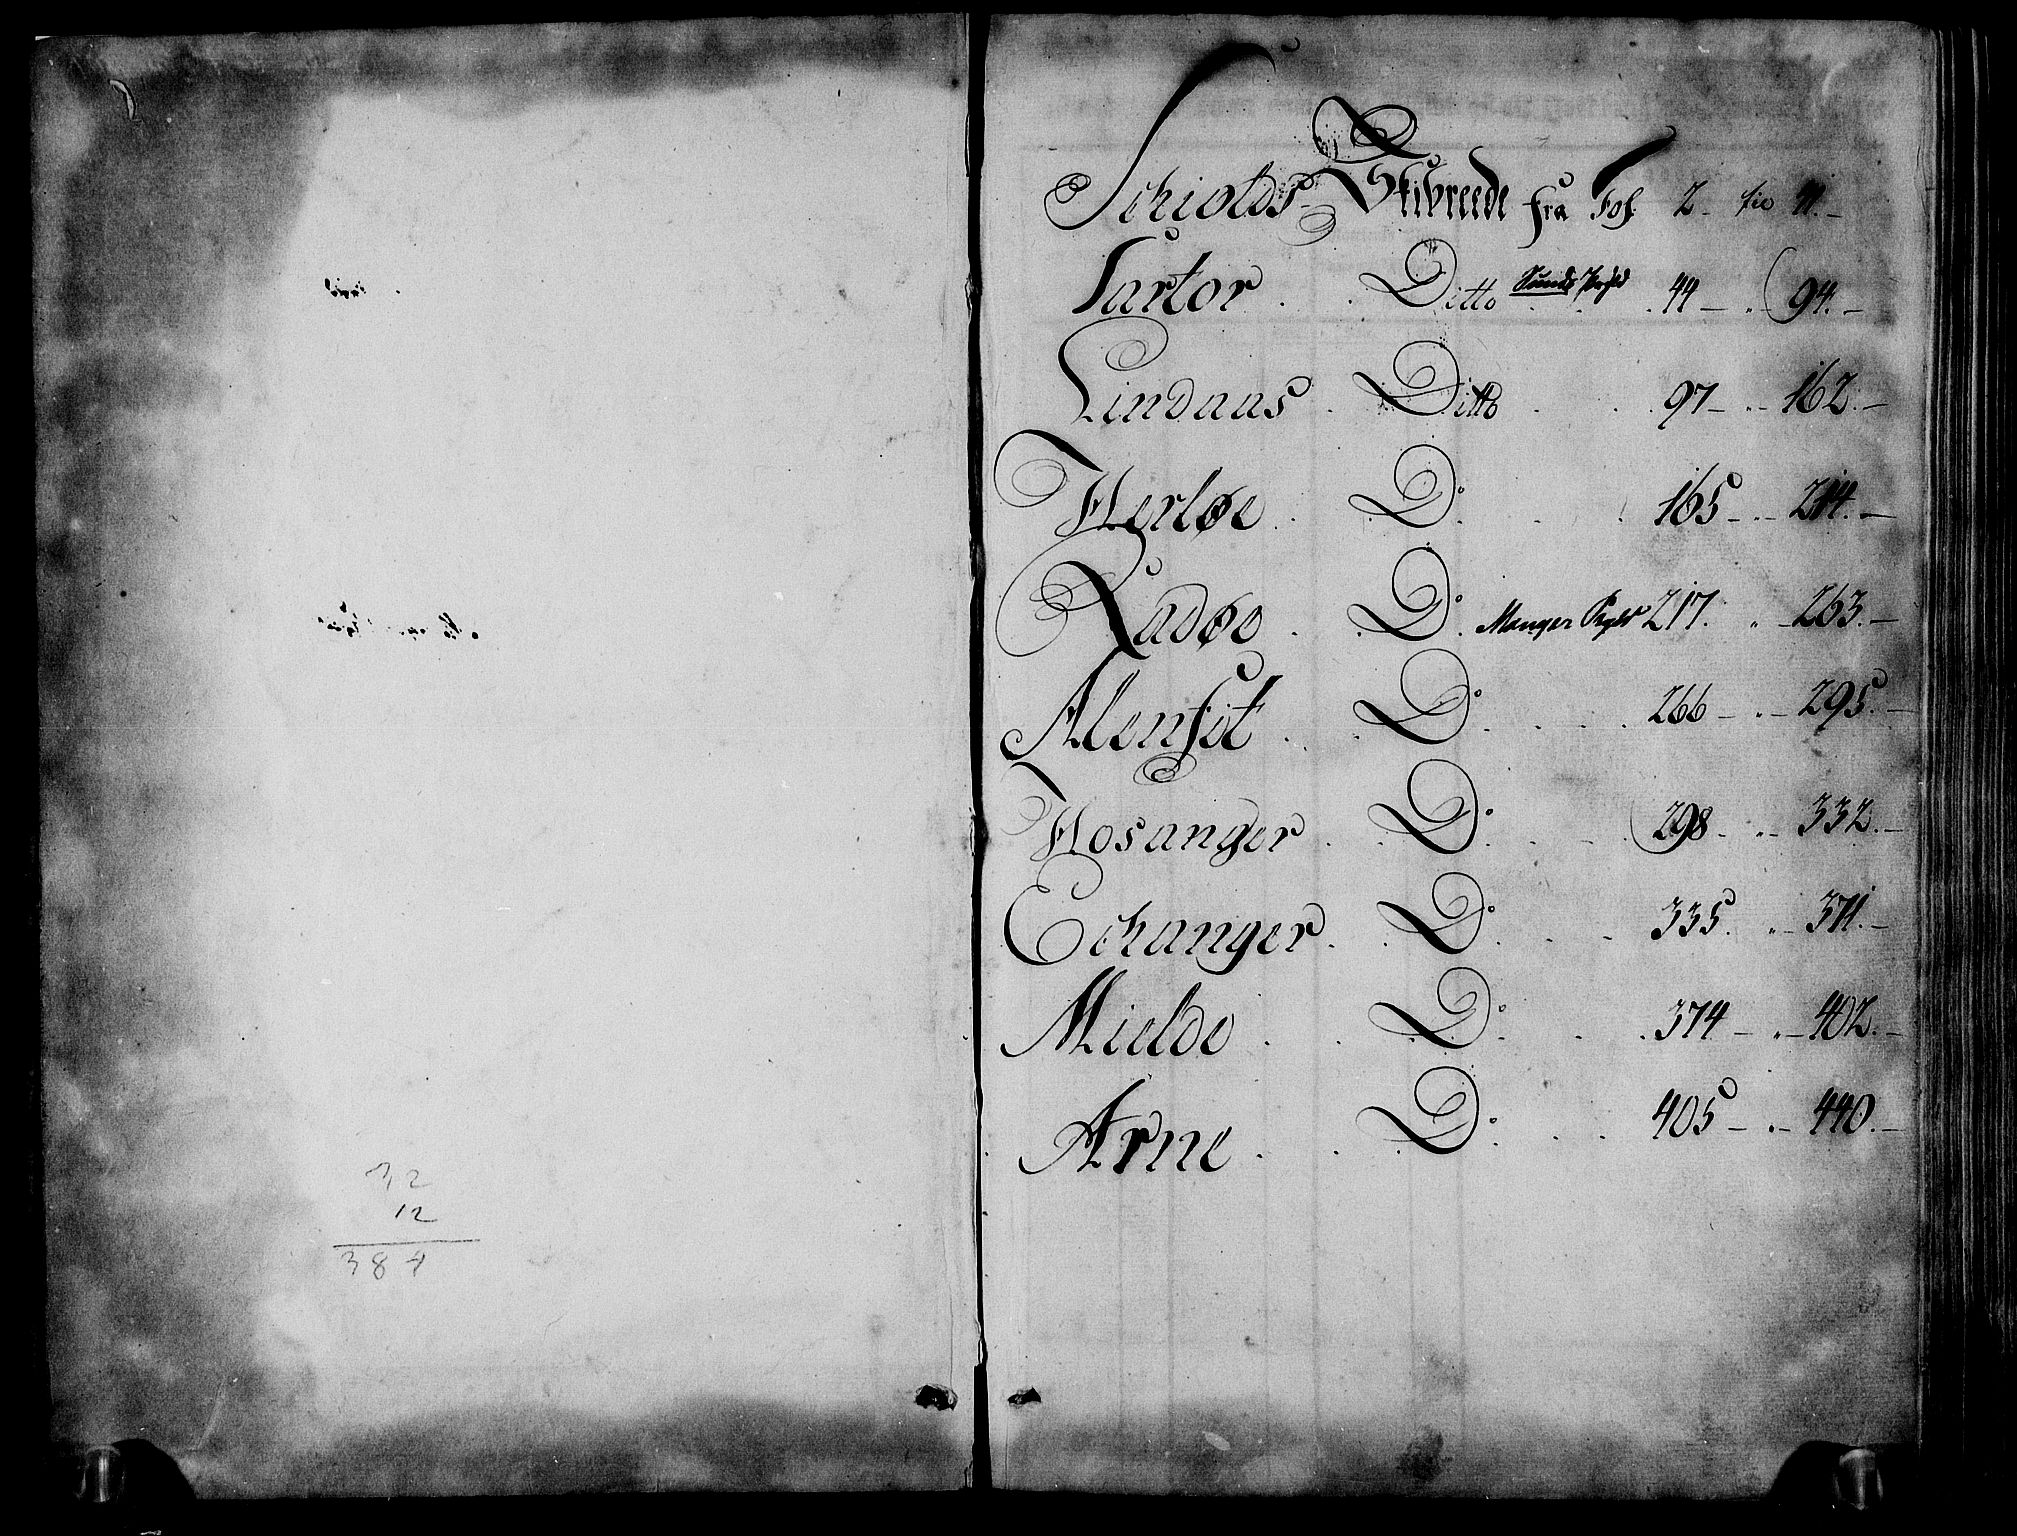 32
12
384
Schiolds Skibreede fra Fol. 2 - til 41. -
Sartor . . Ditto Sunds Præstegield . 44 - " - 94. -
Lindaas . Ditto . . . 97 - " - 162. -
Herløe . . D:o . . . 165 - " - 214. -
Radøe . . D:o Manger Prgld 217. " - 263. -
Alenfit . . D:o . . . 266 - " - 295. -
Hosanger . . D:o . . . 298 - " - 332. -
Echanger . . D:o . . . 335. " - 371. -
Mielde . . D:o . . . 374 - " - 402. -
Arne . . D:o . . . 405 - " - 440. -